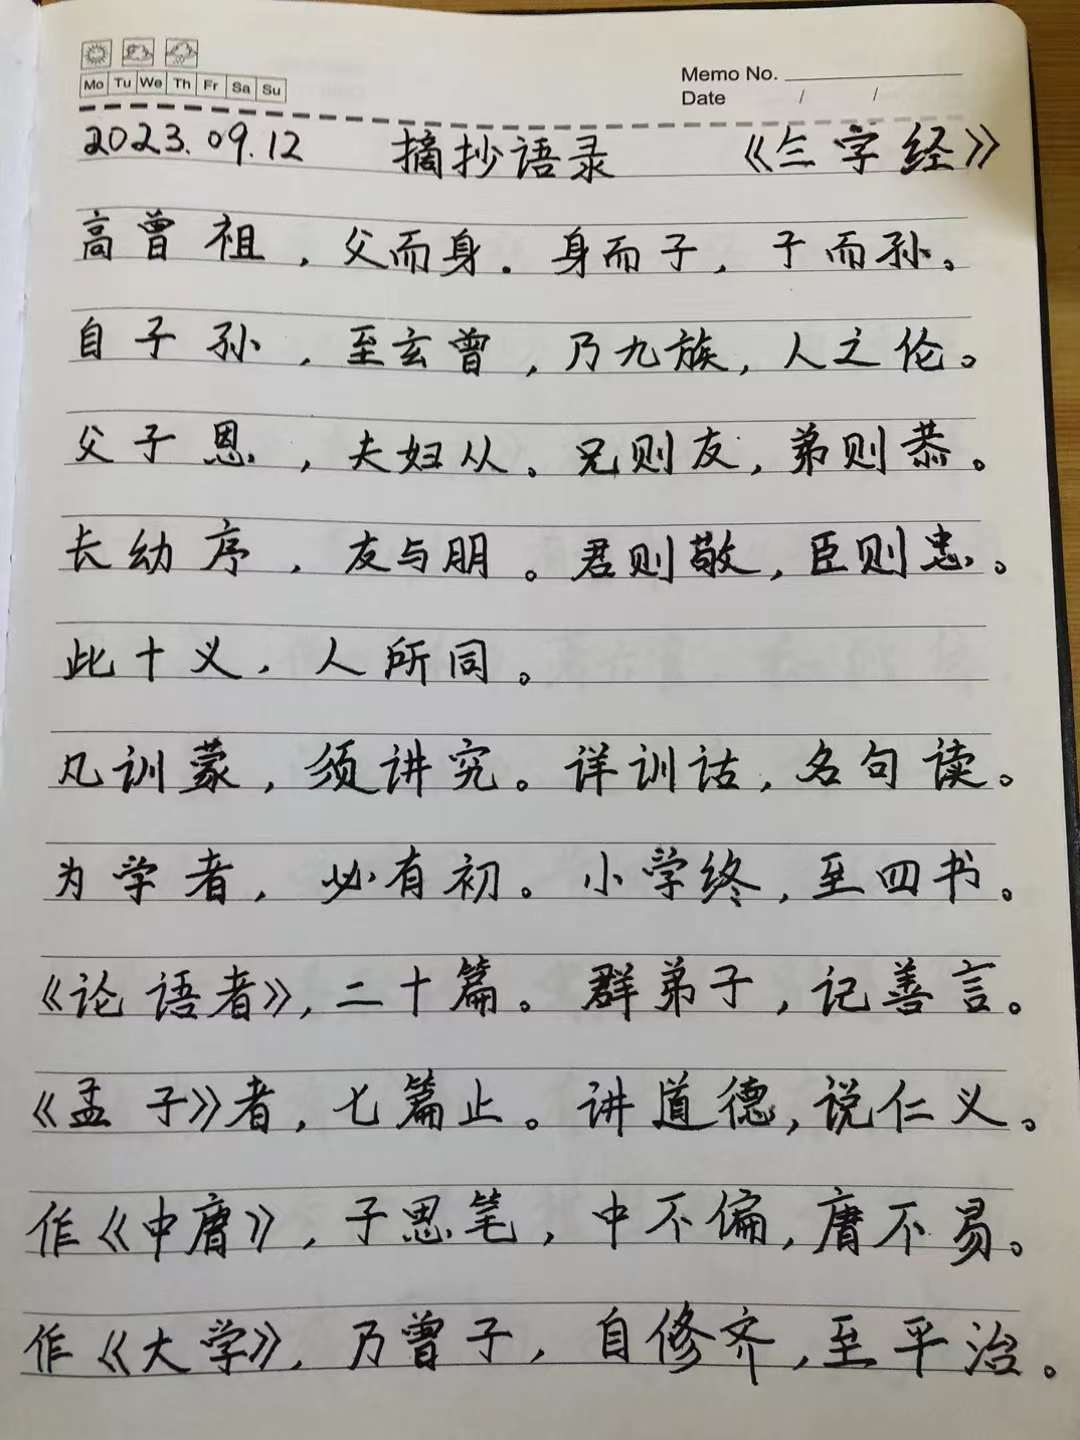 Mo Tu We Th Fr Sa Su
Memo No.
Date / /
2023.09.12 摘抄语录 《三字经》
高曾祖，父而身．身而子，子而孙。
自子孙，至玄曾，乃九族，人之伦。
父子恩，夫妇从。兄则友，弟则恭。
长幼序，友与朋。君则敬，臣则忠。
此十义．人所同。
凡训蒙，须讲究。详训诂，名句读。
为学者，必有初。小学终，至四书。
《论语者》，二十篇。群弟子，记善言。
《孟子》者，七篇止。讲道德，说仁义。
作《中庸》，子思笔，中不偏，庸不易。
作《大学》，乃曾子，自修齐，至平治。